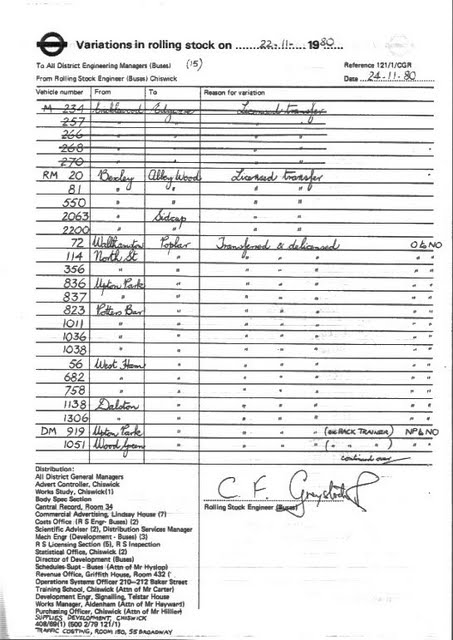 Variations in rolling stock on 22-11- 1980
To All District Engineering Managers (Buses) (15)
Reference 121/1/CGR
From Rolling Stock Engineer (Buses) Chiswick
Date 24.11.80
Vehicle number From To Reason for variation
M 234 Cricklewood Edgware Licensed transfer
257 " " " "
266 " " " "
268 " " " "
270 " " " "
RM 20 Bexley Abbey Wood Licensed transfer
81 " " " "
550 " " " "
2063 " Sidcup " "
2200 " " " "
72 Walthamstow Poplar Transferred & delicensed O to NO
114 North St " " " " " "
356 " " " " " " "
836 Upton Park " " " " " "
837 " " " " " " "
823 Potters Bar " " " " " "
1011 " " " " " " "
1036 " " " " " " "
1038 " " " " " " "
56 West Ham " " " " " "
682 " " " " " " "
758 " " " " " " "
1138 Dalston " " " " " "
1306 " " " " " " "
DM 919 Upton Park " " " " (EX RACK TRAINER) NP to NO
1051 Wood Green " " " " ( " " " ) " "
continued over
Distribution:
All District General Managers
Advert Controller, Chiswick
Works Study, Chiswick (1)
Body Spec Section
Central Record, Room 34
Commercial Advertising, Lindsay House (7)
Costs Office (R S Engr- Buses) (2)
Scientific Adviser (2), Distribution Services Manager
Mech Engr (Development - Buses) (3)
R S Licensing Section (5), R S Inspection
Statistical Office, Chiswick (2)
Director of Development (Buses)
Schedules Supt - Buses (Attn of Mr Hyslop)
Revenue Office, Griffith House, Room 432 (
Operations Systems Officer 210-212 Baker Street
Training School, Chiswick (Attn of Mr Carter)
Development Engr, Signalling, Telstar House
Works Manager, Aldenham (Attn of Mr Hayward)
Purchasing Officer, Chiswick (Attn of Mr Hillier)
SUPPLIES DEVELOPMENT, CHISWICK
408/89(1) (500 2/79 121/1)
TRAFFIC COSTING, ROOM 150, 55 BROADWAY
C. F. Greystock
Rolling Stock Engineer (Buses)